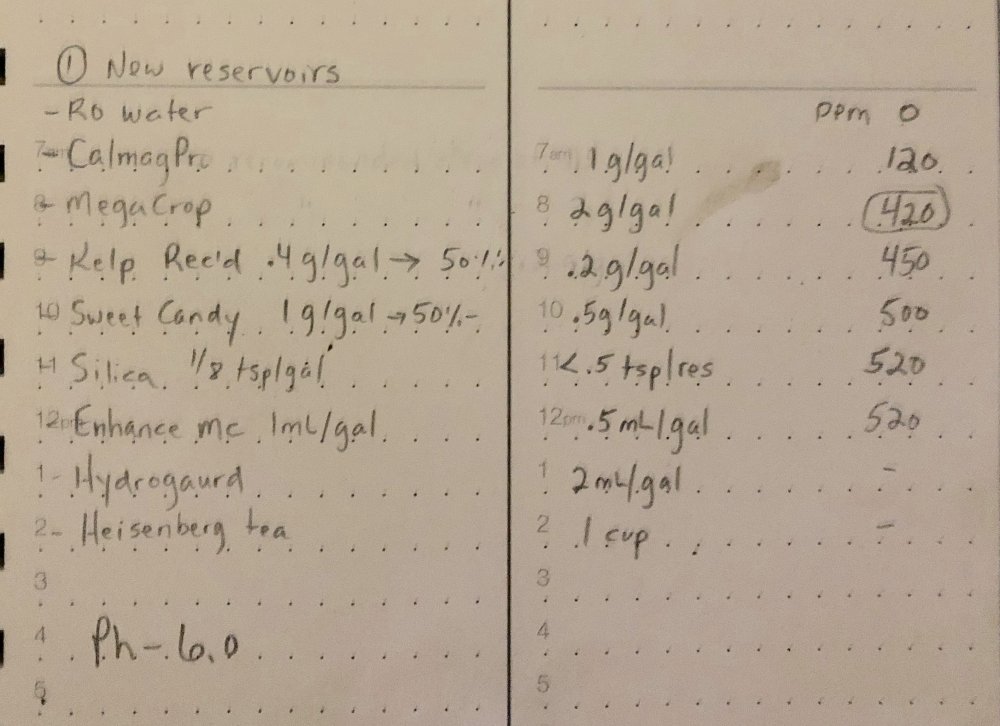 ① New reservoirs
- RO water ppm 0
7am - CalmagPro 7am 1 g/gal 120
8 - MegaCrop 8 2 g/gal 420
9 - Kelp Rec'd .4 g/gal → 50% 9 .2 g/gal 450
10 Sweet Candy 1 g/gal → 50%- 10 .5g/gal 500
11 Silica 1/8 tsp/gal 11 <.5 tsp/res 520
12pm Enhance mc 1mL/gal 12pm .5 mL/gal 520
1 - Hydrogaurd 1 2 mL/gal -
2 - Heisenberg tea 2 1 cup -
3 3
4 Ph - 6.0 4
5 5